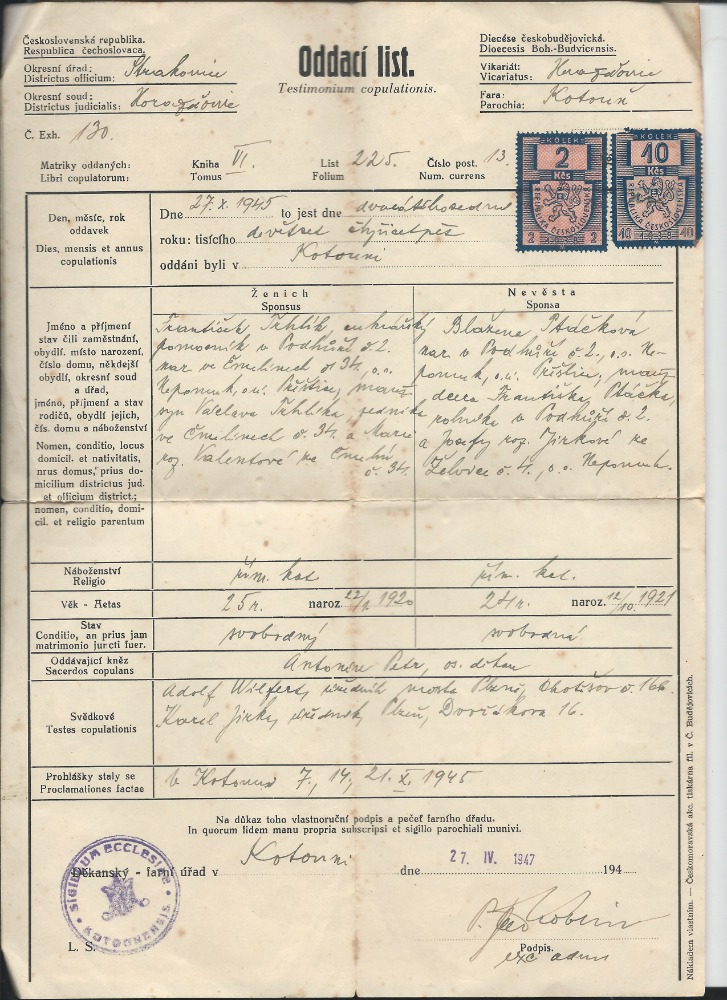 Československá republika.
Respublica čechoslovaca.
Okresní úřad: Strakonice
Districtus officium:
Okresní soud: Horažďovice
Districtus judicialis:
Oddací list.
Testimonium copulationis.
Diecése českobudějovická.
Dioecesis Boh.-Budvicensis.
Vikariát: Horažďovice
Vicariatus:
Fara: Kotouň
Parochia:
Č. Exh. 130.
Matriky oddaných: Kniha VI. List 225. Číslo post. 13.
Libri copulatorum: Tomus Folium Num. currens
KOLEK
2
Kčs
REPUBLIKA ČESKOSLOVENSKÁ
2 2
KOLEK
10
Kčs
REPUBLIKA ČESKOSLOVENSKÁ
10 10
Den, měsíc, rok
oddavek
Dies, mensis et annus
copulationis
Dne 27. X. 1945 to jest dne
roku: tisícího devítset čtyřicetpět
oddáni byli v Kotouni
Jméno a příjmení
stav čili zaměstnání,
obydlí. místo narození,
číslo domu, někdejší
obydlí, okresní soud
a úřad,
jméno, příjmení a stav
rodičů, obydlí jejich,
čís. domu a náboženství
Nomen, conditio, locus
domicil. et nativitatis,
nrus domus, prius do-
micilium districtus jud.
et officium district.;
nomen, conditio, domi-
cil. et religio parentum
Ženich
Sponsus
František Trhlík, cukrářský
pomocník v Podhůří č. 2.
nar. ve Čmelínech č 34, o.s.
Nepomuk, o.ú. Přeštice, manž.
syn Václava Trhlíka, sedníka
ve Čmelínech č. 34. a Marie
roz. Valentové ze Čmelín
č. 34.
Nevěsta
Sponsa
Blažena Ptáčková
nar. v Podhůří č. 2., o.s. Ne-
pomuk, o.ú. Přeštice, manž.
dcera Františka Ptáčka,
rolníka v Podhůří č. 2.
a Josefy roz. Jírkové ze
Želvice č. 4., o.s. Nepomuk.
Náboženství
Religio
řím. kat. řím. kat.
Věk - Aetas 25 r. naroz. 1920 24 r. naroz. 12/10. 1921
Stav
Conditio, an prius jam
matrimonio juncti fuer.
svobodný svobodná
Oddávající kněz
Sacerdos copulans
Antonín Petr, os. děkan
Svědkové
Testes copulationis
Adolf Wilfert, úředník města Plzně, Chotěšov č. 166.
Karel Jírka, úředník, Plzeň, Dvořákova 16.
Prohlášky staly se
Proclamationes factae
v Kotouni 7., 14., 21. X. 1945
Na důkaz toho vlastnoruční podpis a pečeť farního úřadu.
In quorum fidem manu propria subscripsi et sigillo parochiali munivi.
Děkanský - farní úřad v Kotouni dne 27. IV. 1947 194
SIGILLUM ECCLESIAE
KOTOUNENSIS
L. S.
Podpis.
exc. adm.
Nákladem vlastním. — Českomoravská akc. tiskárna fil. v Č. Budějovicích.